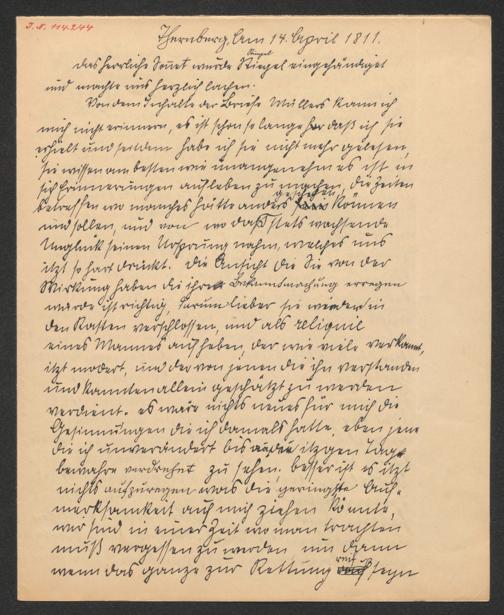 I.N. 114244
Thernberg, Am 14. April 1811.
Das herrliche Sonet wurde Stiegel eingehändiget
und machte uns herzlich lachen.
Von dem Inhalte der Briefe Müllers kann ich
mich nicht erinnern, es ist schon so lange her daß ich sie
erhielt und seitdem habe ich sie nicht mehr gelesen,
Sie wissen am besten wie unangenehm es ist in
sich Erinnerungen aufleben zu machen, die Zeiten
betreffen wo manches hätte anders geschehen können
und sollen, und von wo das stets wachsende
Unglück seinen Ursprung nahm, welches uns
itzt so hart drückt. Die Ansicht die Sie von der
Wirkung haben die ihre Bekanntmachung erregen
würde ist richtig, darum lieber sie wieder in
den Kasten verschlossen, und als reliquie
eines Mannes aufheben, der wie viele verkannt,
itzt modert, und der von jenen die ihn verstanden
und kannten allein geschätzt zu werden
verdient. es wäre nichts neues für mich die
Gesinnungen die ich damals hatte, eben jene
die ich unverändert bis itzigen Tag
bewahre verdrehet zu sehen. besser ist es itzt
nichts aufzuregen was die geringste Auf-
merksamkeit auf mich ziehen könnte,
wir sind in einer Zeit wo man trachten
muß vergessen zu werden um dann
wenn das ganze zur Rettung reif seyn